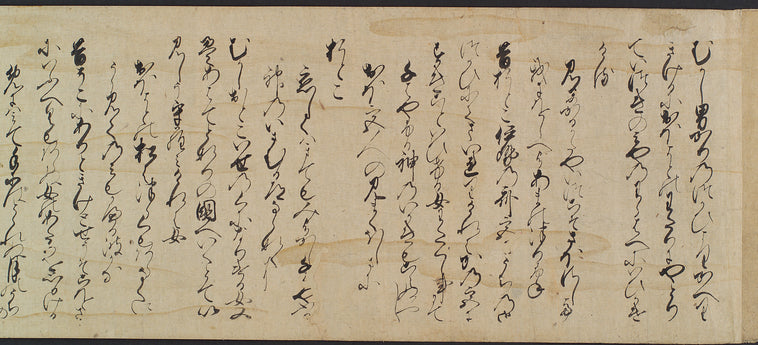 むかし男かりのつかひよりかへり
きけるにおほよとのわたりにやとり
ていつきのみやのわらはへにいひかけ
ける
みるめかるかたやいつこそさほさして
我にをしへよあまのつり舟
昔おとこ伊勢の斎宮にうちの御
つかひにてまいれりけれはかの宮に
すきこといひける女わたくしことにて
千はやふる神のいかきもこえぬへし
おほ宮人の見まくほしさに
おとこ
恋しくはきてもみよかし千はやふる
神のいさむる道ならなくに
むかしおとこいせのくになりける女又
えあはてとなりの国へいくとていみ
しううらみけれは女
おほよとの松はつらくもあらなくに
うらみてのみもかへる波かな
昔そこにはありときけとせうそこをたに
いふへくもあらぬ女のあたりを思ける
めには見て手にはとられぬ月のうちの